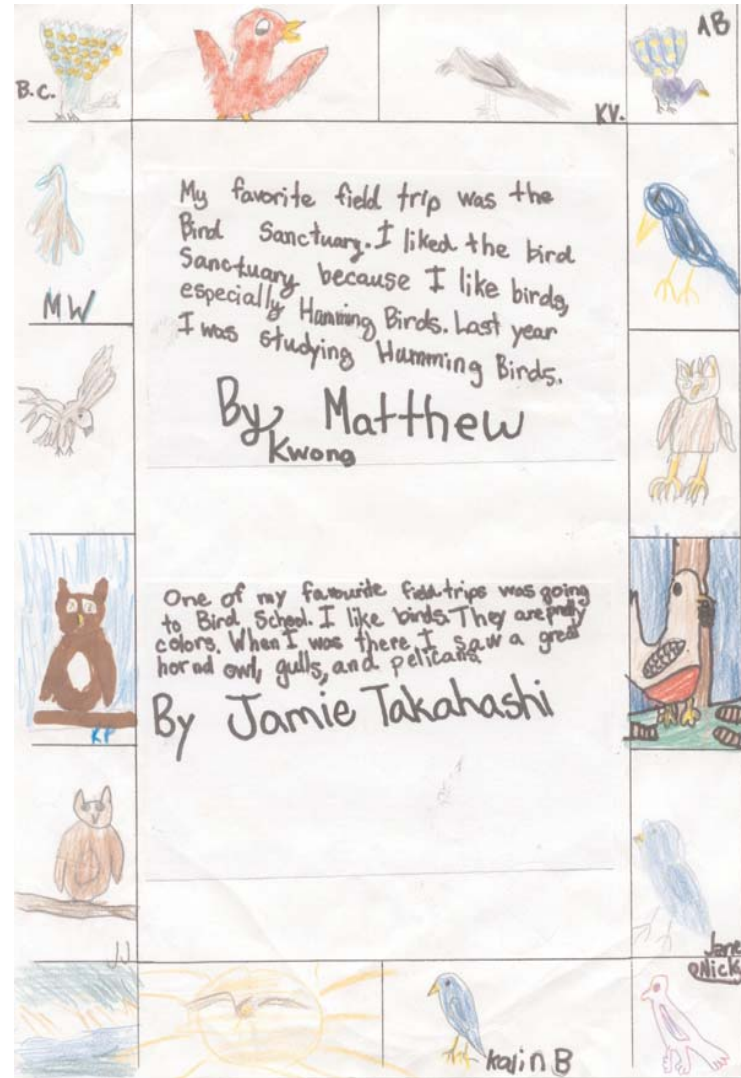 B.C.
KV.
AB
MW
My favorite field trip was the
Bird Sanctuary. I liked the bird
Sanctuary because I like birds,
especially Hamming Birds. Last year
I was studying Humming Birds.
By Matthew
Kwong
One of my favourite field trips was going
to Bird School. I like birds. They are pretty
colors. When I was there I saw a great
hornd owl, gulls, and pelicans
By Jamie Takahashi
KP
JJ
Jane
Nick
Kalin B